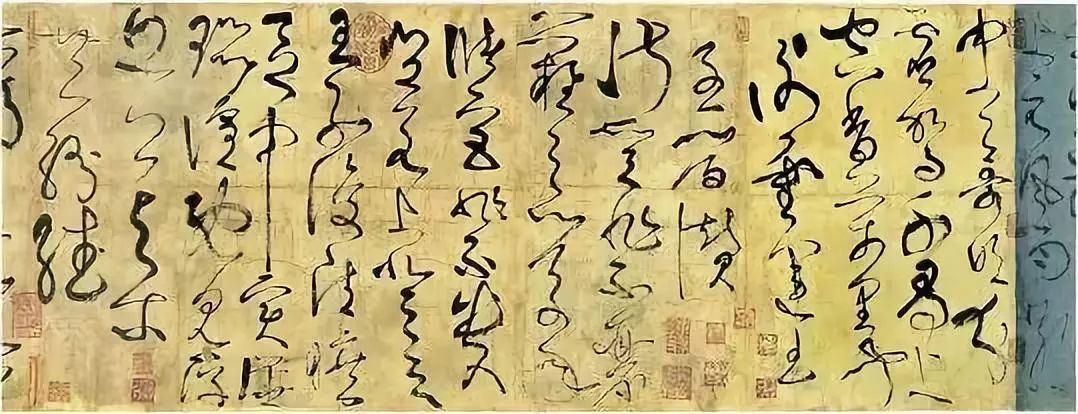 上元风雨散
中天歌吹
分灵驾千寻上
空香万里闻
谢灵运王
子晋赞
淑质非不丽
难之以万年
储宫非不贵
岂若上登天
王子复清旷
区中实哗
嚣既见浮
丘公与尔
共纷繻